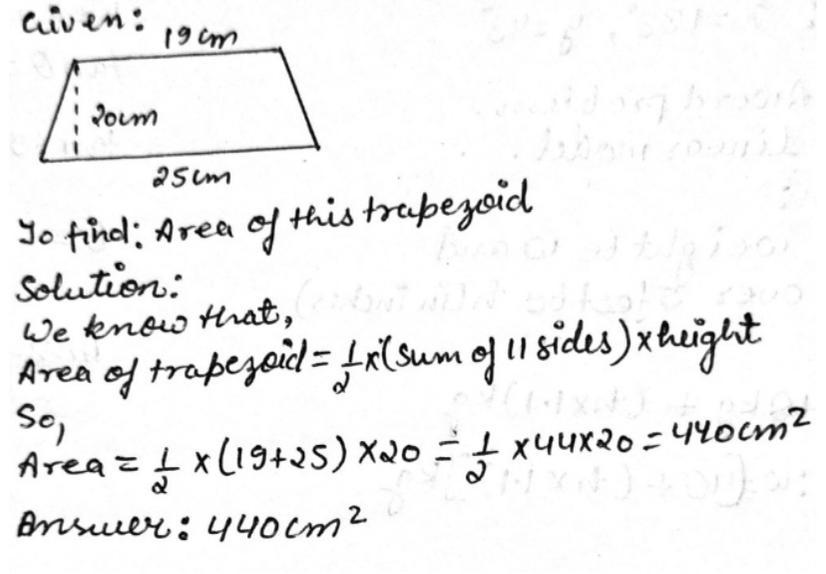 Given:
19cm
20cm
25cm
To find: Area of this trapezoid
Solution:
We know that,
Area of trapezoid = 1/2 x (sum of || sides) x height
So,
Area = 1/2 x (19+25) x 20 = 1/2 x 44 x 20 = 440cm²
Answer: 440cm²